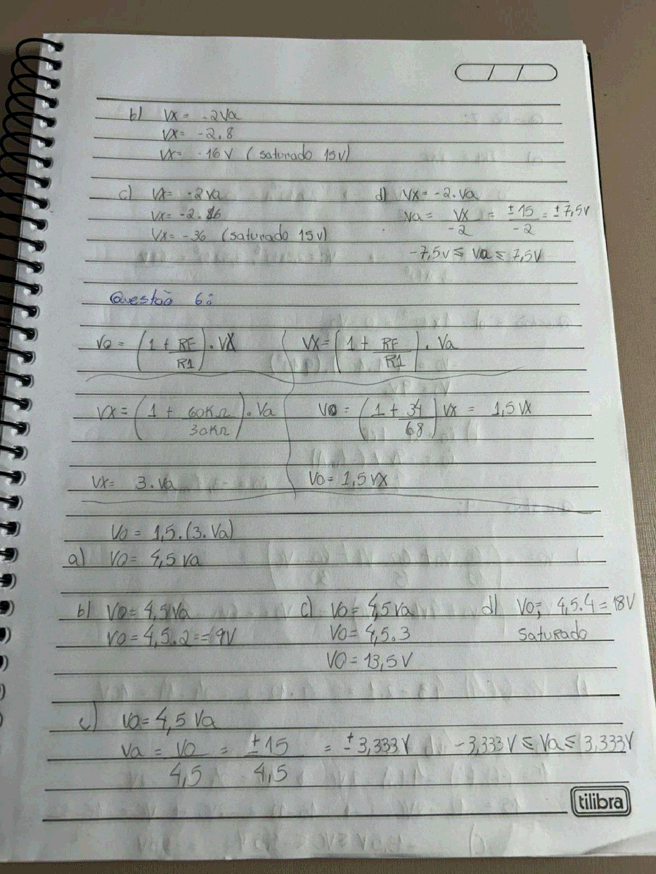 b) Vx = -2Va
Vx = -2.8
Vx = -16V (saturado 15V)
c) Vx = -2Va
Vx = -2.16
Vx = -36 (saturado 15V)
d) Vx = -2.Va
Va = Vx/-2 = ±15/-2 = ±7,5V
-7,5V ≤ Va ≤ 7,5V
Questão 6:
Vo = (1 + RF/R1) . VX
Vx = (1 + RF/R1) . Va
Vx = (1 + 60KΩ/30KΩ) . Va
Vo = (1 + 34/68) Vx = 1,5 Vx
Vx = 3.Va
Vo = 1,5 Vx
Vo = 1,5.(3.Va)
a) Vo = 4,5 Va
b) Vo = 4,5 Va
Vo = 4,5.2 = 9V
c) Vo = 4,5 Va
Vo = 4,5.3
Vo = 13,5V
d) Vo = 4,5.4 = 18V
Saturado
Vo = 4,5 Va
Va = Vo/4,5 = ±15/4,5 = ±3,333V
-3,333V ≤ Va ≤ 3,333V
tilibra